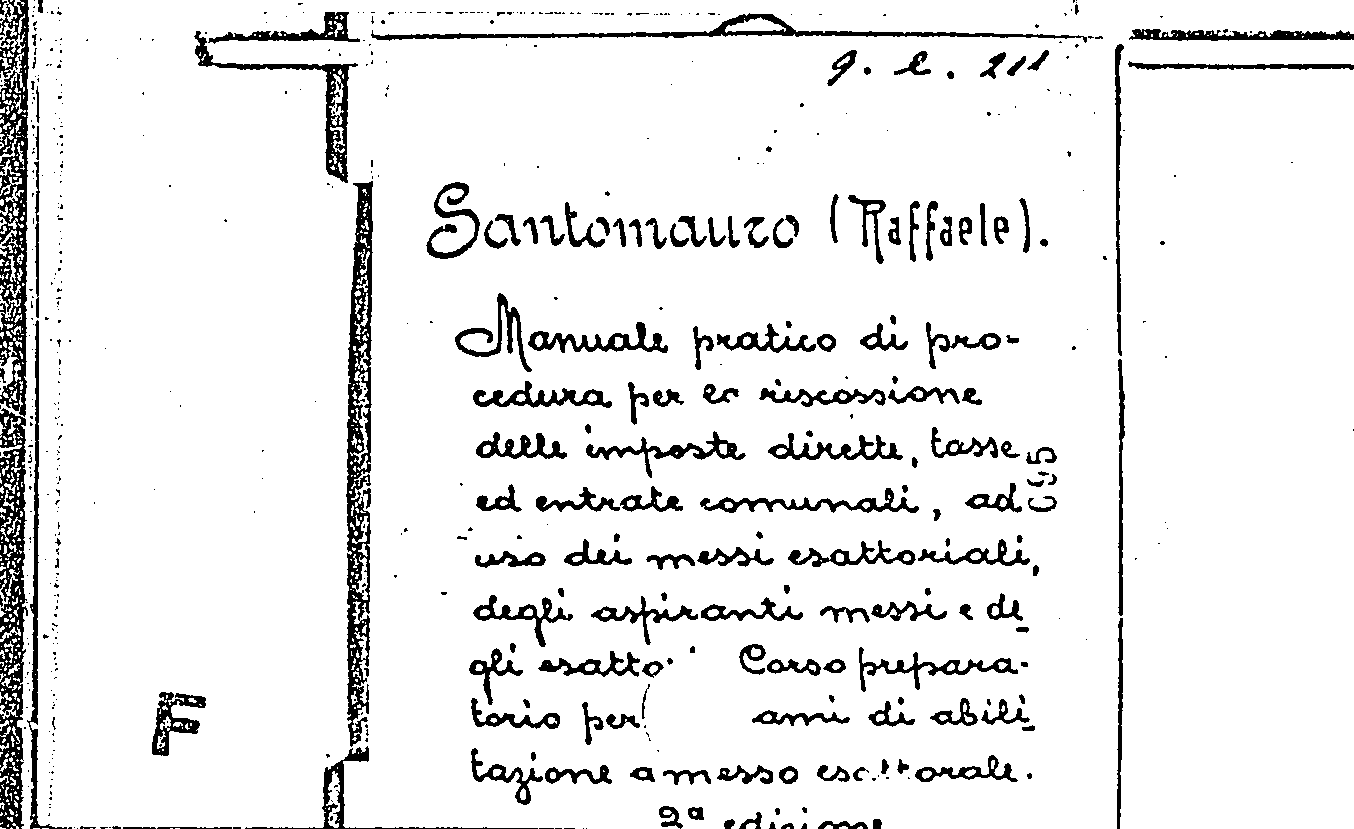 g. l. 211
Santomauro (Raffaele).
Manuale pratico di pro-
cedura per la riscossione
delle imposte dirette, tasse
ed entrate comunali, ad
uso dei messi esattoriali,
degli aspiranti messi e de
gli Corso prepara-
torio per di abili
tazione a messo esattorale.
2ª edizione
F